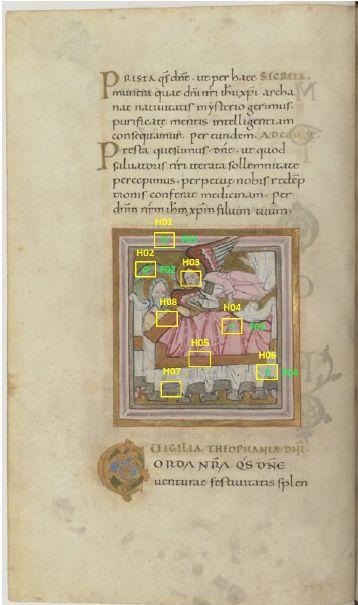 PRESTA q̄s dn̄e. ut per haec SECRETA.
munera quae dn̄i nr̄i ihū xp̄i archa
nae nativitatis mysterio gerimus.
purificatae mentis intelligentiam
consequamur. per eundem. AD COMPL.
Presta quesumus. dn̄e. ut quod
salvatoris nr̄i iterata sollemnitate
percepimus. perpetuae nobis redēp
tionis conferat medicinam. Per
dn̄m nr̄m ihm̄ xp̄m filium tuum.
H01
F01
H02
F02
H03
H08
H04
F03
H05
H06
F04
H07
VIGILIA THEOPHANIAE DNI.
CORDA NRĀ Q̄S DN̄E
venturae festivitatis splen